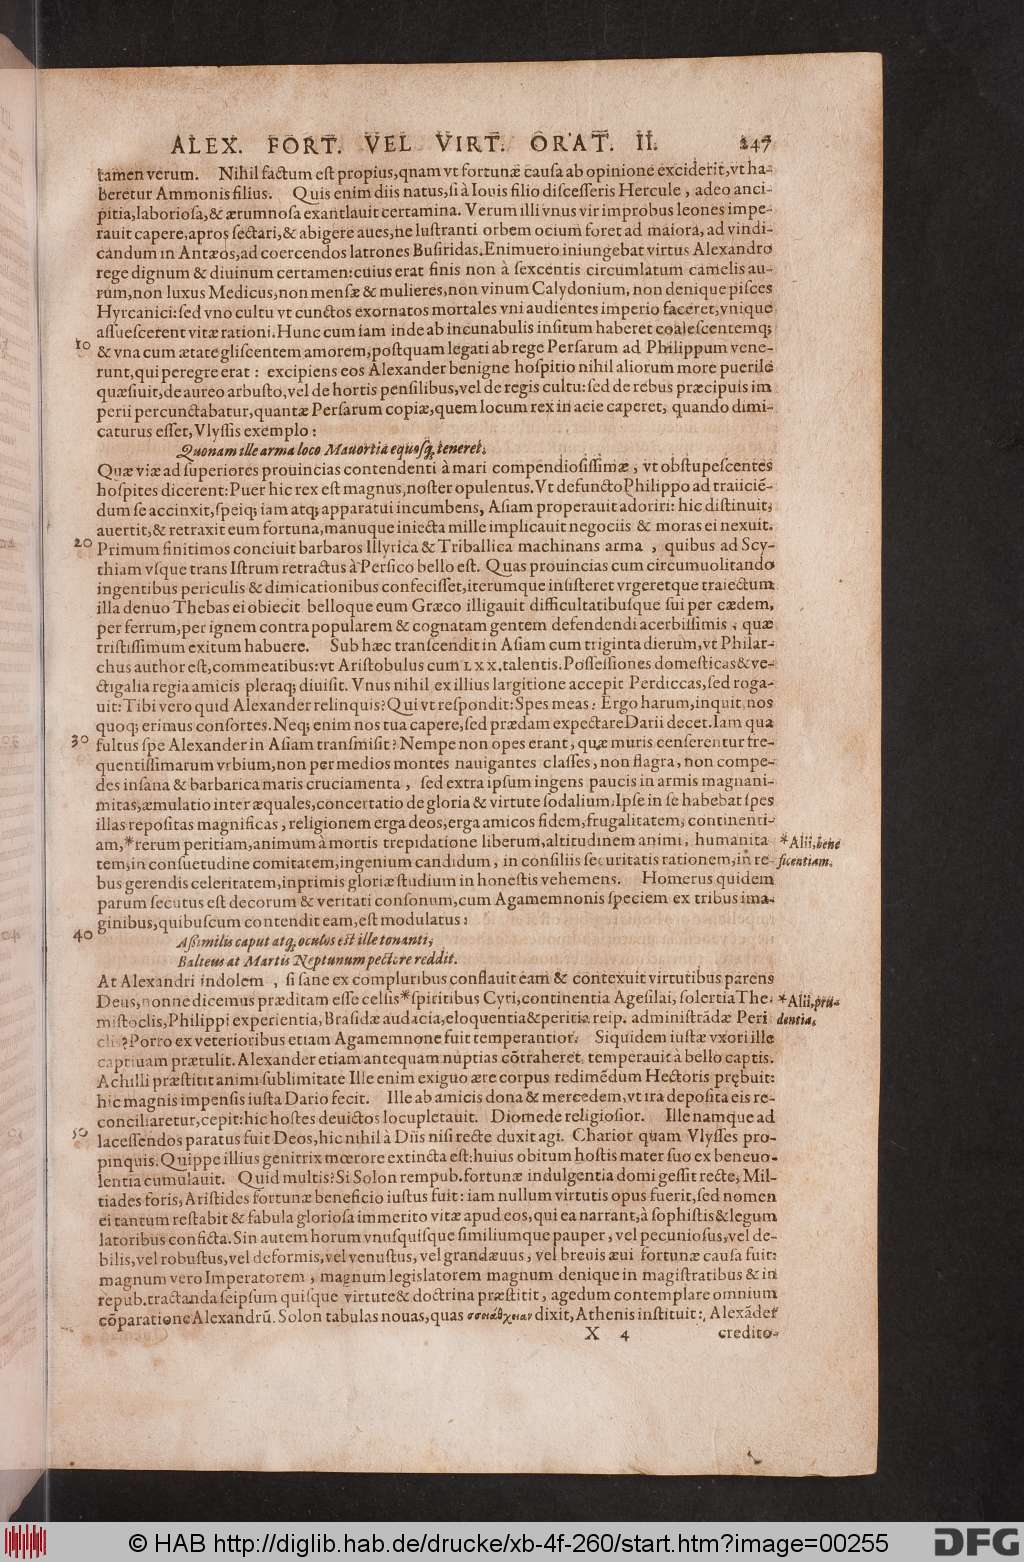 ALEX. FORT. VEL VIRT. ORAT. II. 247
tamen verum. Nihil factum est propius,quam vt fortunæ causa ab opinione exciderit,vt ha-
beretur Ammonis filius. Quis enim diis natus,si à Iouis filio discesseris Hercule, adeo anci-
pitia,laboriosa,& ærumnosa exantlauit certamina. Verum illi vnus vir improbus leones impe-
rauit capere,apros sectari,& abigere aues,ne lustranti orbem ocium foret ad maiora, ad vindi-
candum in Antæos,ad coercendos latrones Busiridas.Enimuero iniungebat virtus Alexandro
rege dignum & diuinum certamen:cuius erat finis non à sexcentis circumlatum camelis au-
rum,non luxus Medicus,non mensæ & mulieres,non vinum Calydonium, non denique pisces
Hyrcanici:sed vno cultu vt cunctos exornatos mortales vni audientes imperio faceret,vnique
assuescerent vitæ rationi.Hunc cum iam inde ab incunabulis insitum haberet coalescentemq;
10 & vna cum ætate gliscentem amorem,postquam legati ab rege Persarum ad Philippum vene-
runt,qui peregre erat : excipiens eos Alexander benigne hospitio nihil aliorum more puerile
quæsiuit,de aureo arbusto,vel de hortis pensilibus,vel de regis cultu:sed de rebus præcipuis im
perii percunctabatur,quantæ Persarum copiæ,quem locum rex in acie caperet, quando dimi-
caturus esset,Vlyssis exemplo :
Quonam ille arma loco Mauortia equosq; teneret.
Quæ viæ ad superiores prouincias contendenti à mari compendiosissimæ, vt obstupescentes
hospites dicerent:Puer hic rex est magnus,noster opulentus.Vt defuncto Philippo ad traiiciē-
dum se accinxit,speiq; iam atq; apparatui incumbens, Asiam properauit adoriri: hic distinuit,
auertit,& retraxit eum fortuna,manuque iniecta mille implicauit negociis & moras ei nexuit.
20 Primum finitimos conciuit barbaros Illyrica & Triballica machinans arma , quibus ad Scy-
thiam vsque trans Istrum retractus à Persico bello est. Quas prouincias cum circumuolitando
ingentibus periculis & dimicationibus confecisset,iterumque insisteret vrgeretque traiectum
illa denuo Thebas ei obiecit belloque eum Græco illigauit difficultatibusque sui per cædem,
per ferrum,per ignem contra popularem & cognatam gentem defendendi acerbissimis, quæ
tristissimum exitum habuere. Sub hæc transcendit in Asiam cum triginta dierum,vt Philar-
chus author est,commeatibus:vt Aristobulus cum LXX.talentis.Possessiones domesticas&ve-
ctigalia regia amicis pleraq; diuisit. Vnus nihil ex illius largitione accepit Perdiccas,sed roga-
uit:Tibi vero quid Alexander relinquis?Qui vt respondit:Spes meas: Ergo harum,inquit,nos
quoq; erimus consortes.Neq; enim nos tua capere,sed prædam expectare Darii decet.Iam qua
30 fultus spe Alexander in Asiam transmisit? Nempe non opes erant, quæ muris censerentur fre-
quentissimarum vrbium,non per medios montes nauigantes classes, non flagra, non compe-
des insana & barbarica maris cruciamenta, sed extra ipsum ingens paucis in armis magnani-
mitas,æmulatio inter æquales,concertatio de gloria & virtute sodalium.Ipse in se habebat spes
illas repositas magnificas, religionem erga deos,erga amicos fidem,frugalitatem, continenti-
am,*rerum peritiam,animum à mortis trepidatione liberum,altitudinem animi, humanita *Alii,bene
tem,in consuetudine comitatem,ingenium candidum, in consiliis securitatis rationem,in re- ficentiam.
bus gerendis celeritatem,inprimis gloriæ studium in honestis vehemens. Homerus quidem
parum secutus est decorum & veritati consonum,cum Agamemnonis speciem ex tribus ima-
ginibus,quibuscum contendit eam,est modulatus:
40 Assimilis caput atq; oculos est ille tonanti,
Balteus at Martis Neptunum pectore reddit.
At Alexandri indolem , si sane ex compluribus conflauit eam & contexuit virtutibus parens
Deus,nonne dicemus præditam esse celsis*spiritibus Cyri,continentia Agesilai, solertia The- *Alii,pru-
mistoclis,Philippi experientia, Brasidæ audacia,eloquentia&peritia reip. administrādæ Peri dentia.
clis?Porro ex veterioribus etiam Agamemnone fuit temperantior. Siquidem iustæ vxori ille
captiuam prætulit. Alexander etiam antequam nuptias cōtraheret, temperauit à bello captis.
Achilli præstitit animi sublimitate Ille enim exiguo ære corpus redimēdum Hectoris prębuit:
hic magnis impensis iusta Dario fecit. Ille ab amicis dona & mercedem,vt ira deposita eis re-
conciliaretur,cepit:hic hostes deuictos locupletauit. Diomede religiosior. Ille namque ad
50 lacessendos paratus fuit Deos,hic nihil à Diis nisi recte duxit agi. Charior quam Vlysses pro-
pinquis.Quippe illius genitrix mœrore extincta est:huius obitum hostis mater suo ex beneuo-
lentia cumulauit. Quid multis?Si Solon rempub.fortunæ indulgentia domi gessit recte, Mil-
tiades foris, Aristides fortunæ beneficio iustus fuit: iam nullum virtutis opus fuerit,sed nomen
ei tantum restabit & fabula gloriosa immerito vitæ apud eos,qui ea narrant,à sophistis&legum
latoribus conficta.Sin autem horum vnusquisque similiumque pauper, vel pecuniosus,vel de-
bilis,vel robustus,vel deformis,vel venustus, vel grandæuus, vel breuis æui fortunæ causa fuit:
magnum vero Imperatorem , magnum legislatorem magnum denique in magistratibus & in
repub.tractanda seipsum quisque virtute& doctrina præstitit, agedum contemplare omnium
cōparatione Alexandrū. Solon tabulas nouas,quas dixit, Athenis instituit:, Alexāder
X 4 credito-
© HAB http://diglib.hab.de/drucke/xb-4f-260/start.htm?image=00255
DFG